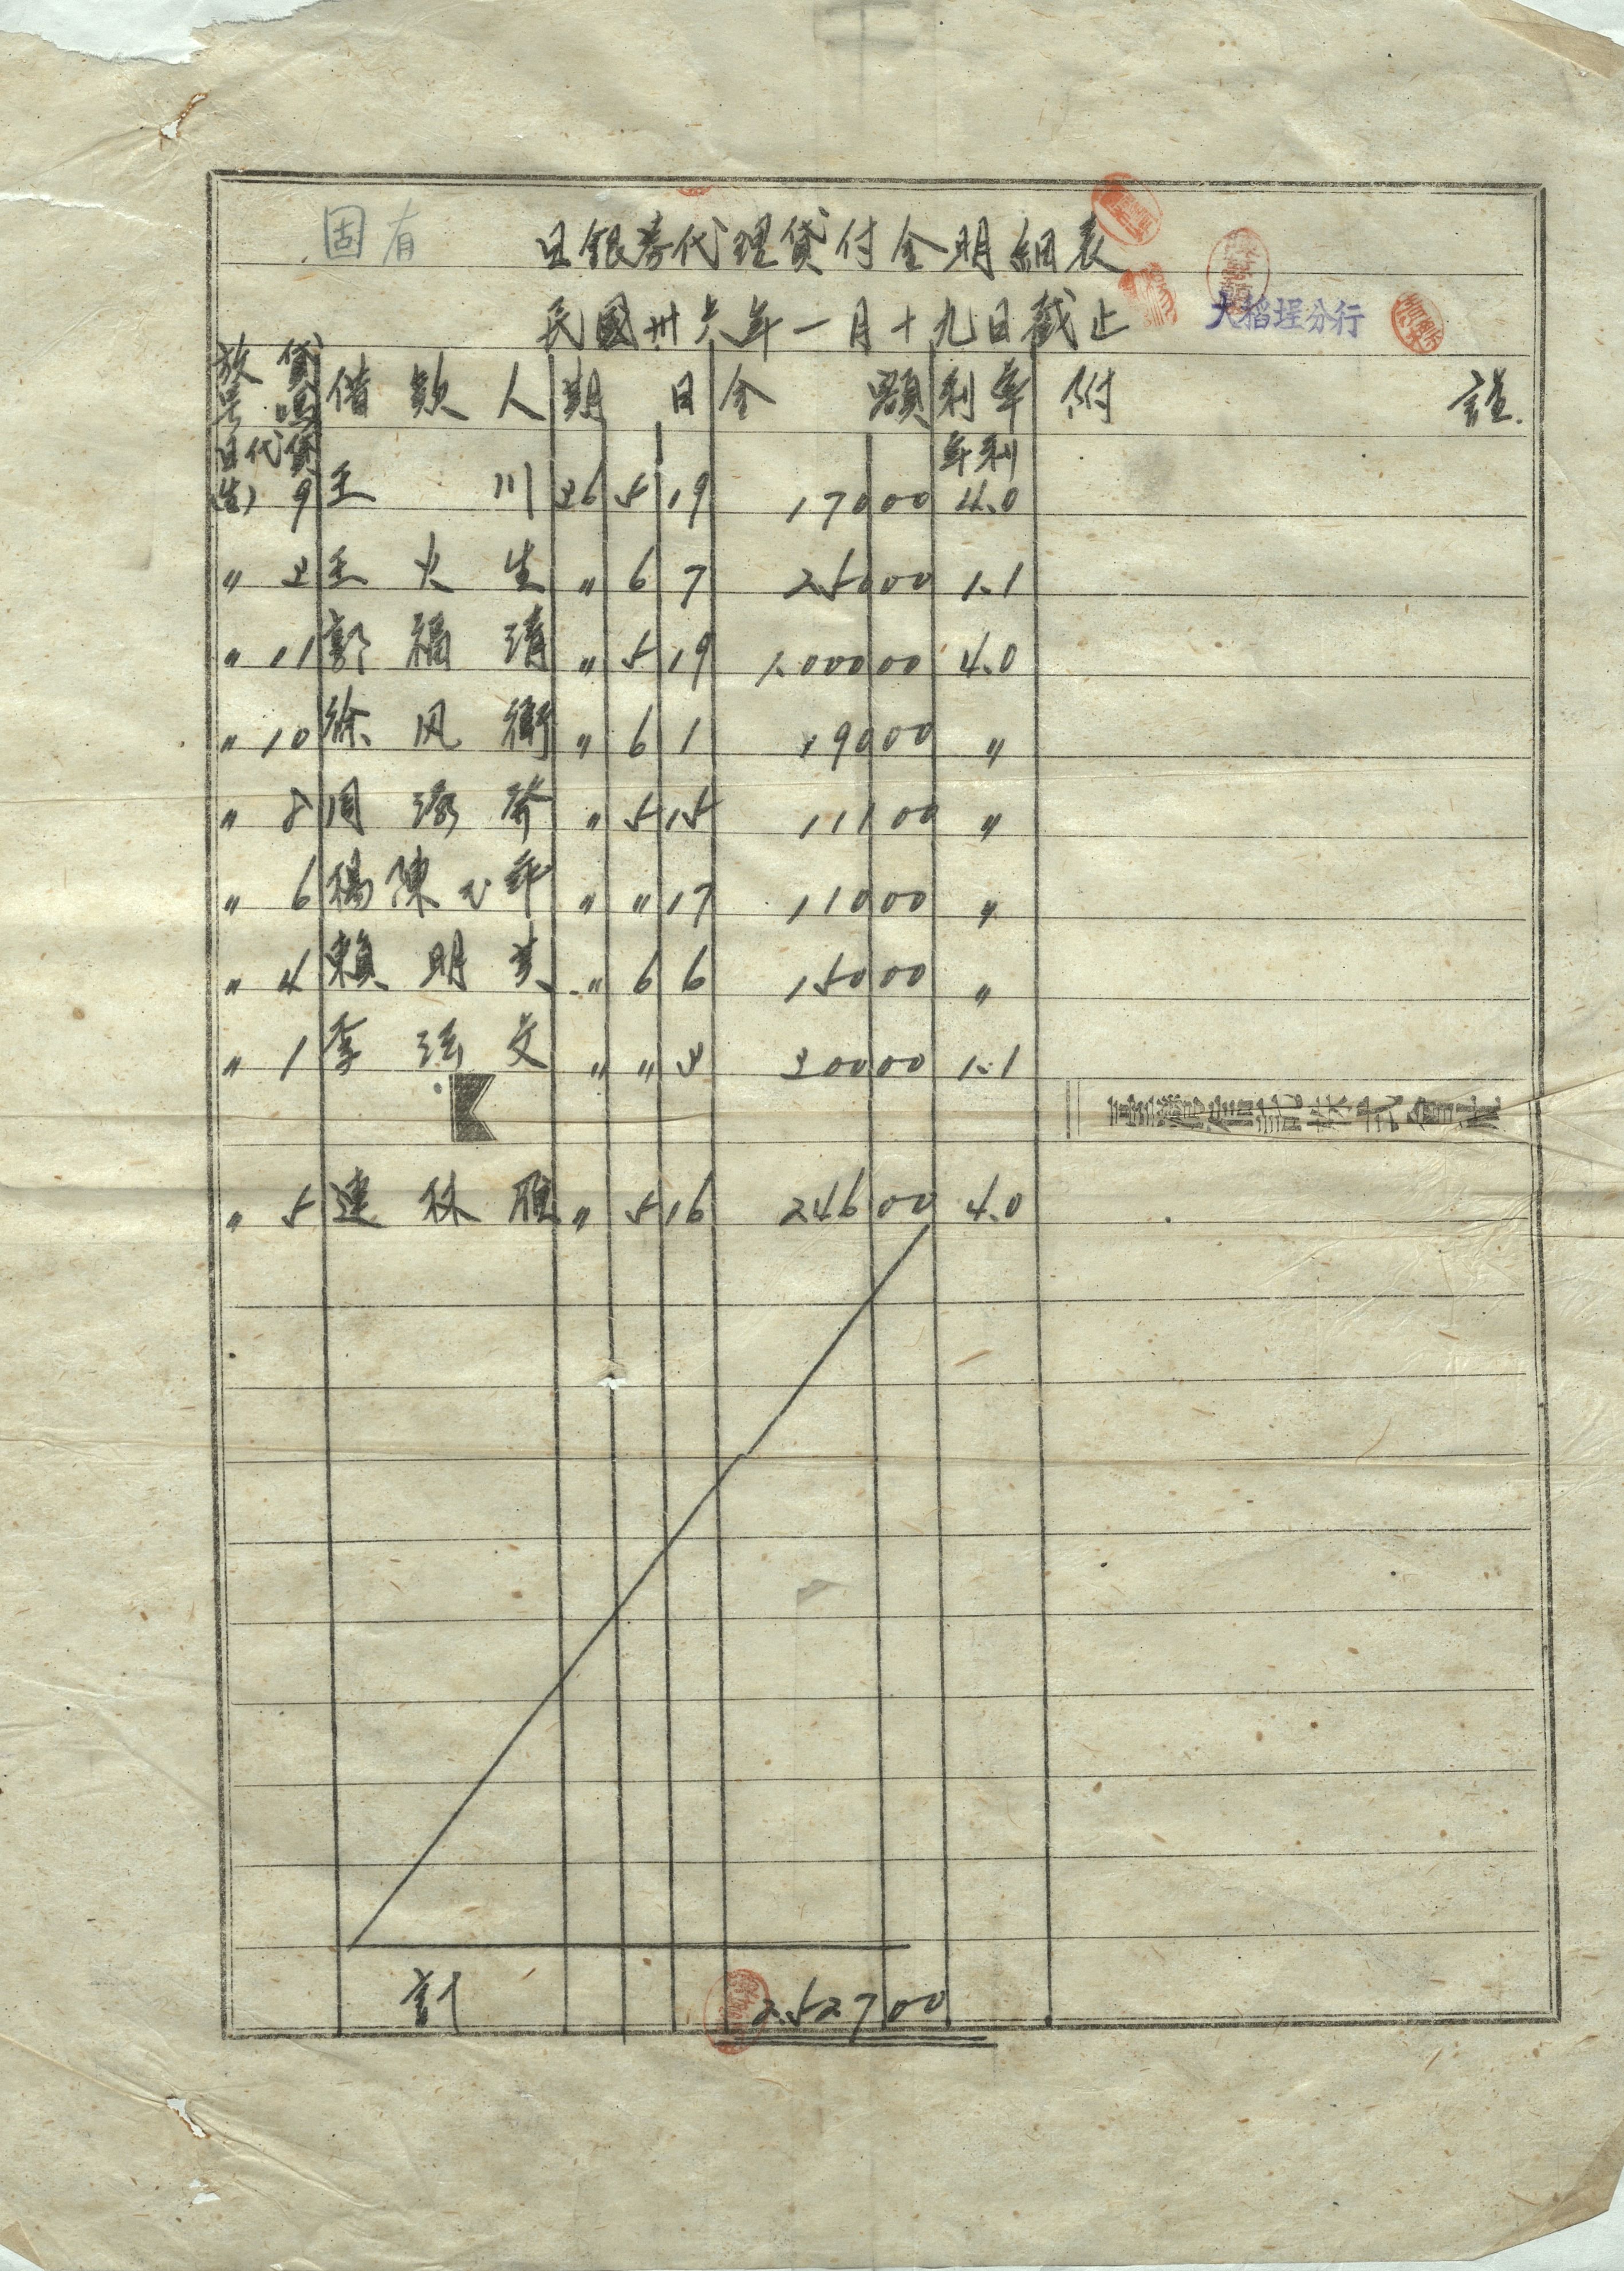 固有
日銀券代理貸付金明細表
民國卅六年一月十九日截止
大稻埕分行
放貸
借款人 期日 金額 利率 附
日代貸 年利
9 王川 36 5 19 17000 4.0
〃 3 王火生 〃 6 7 25000 1.1
〃 11 郭福清 〃 5 19 1.00000 4.0
〃 10 徐風衛 〃 6 1 19000 〃
〃 8 周 〃 5 15 11100 〃
〃 6 楊陳 〃 〃 17 11000 〃
〃 4 賴明 〃 6 6 15000 〃
〃 1 李 文 〃 〃 3 30000 1.1
〃 5 連林雁 〃 5 16 24600 4.0
計 2.52700